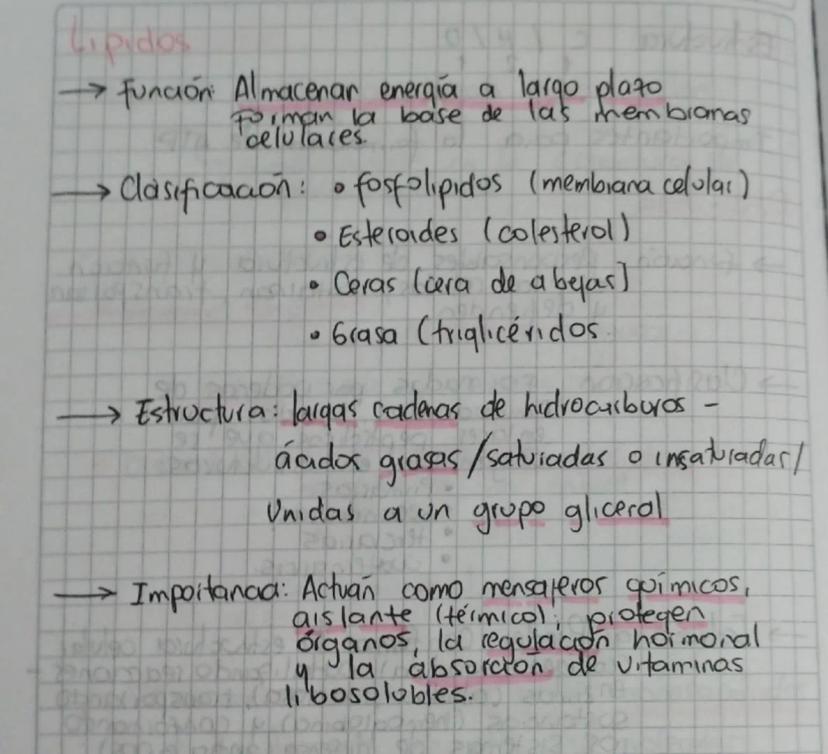 Lipidos
→ función: Almacenar energía a largo plazo
Forman la base de las membranas
celulares.
→ Clasificación: • fosfolipidos (membrana celular)
• Esteroides (colesterol)
• Ceras (cera de abejas]
• Grasa (triglicéridos
→ Estructura: largas cadenas de hidrocarburos -
ácidos grasas / saturadas o insaturadas/
Unidas a un grupo glicerol
→ Importancia: Actuán como mensajeros químicos,
aislante (térmico), protegen
órganos, la regulación hormonal
y la absorción de vitaminas
libosolubles.